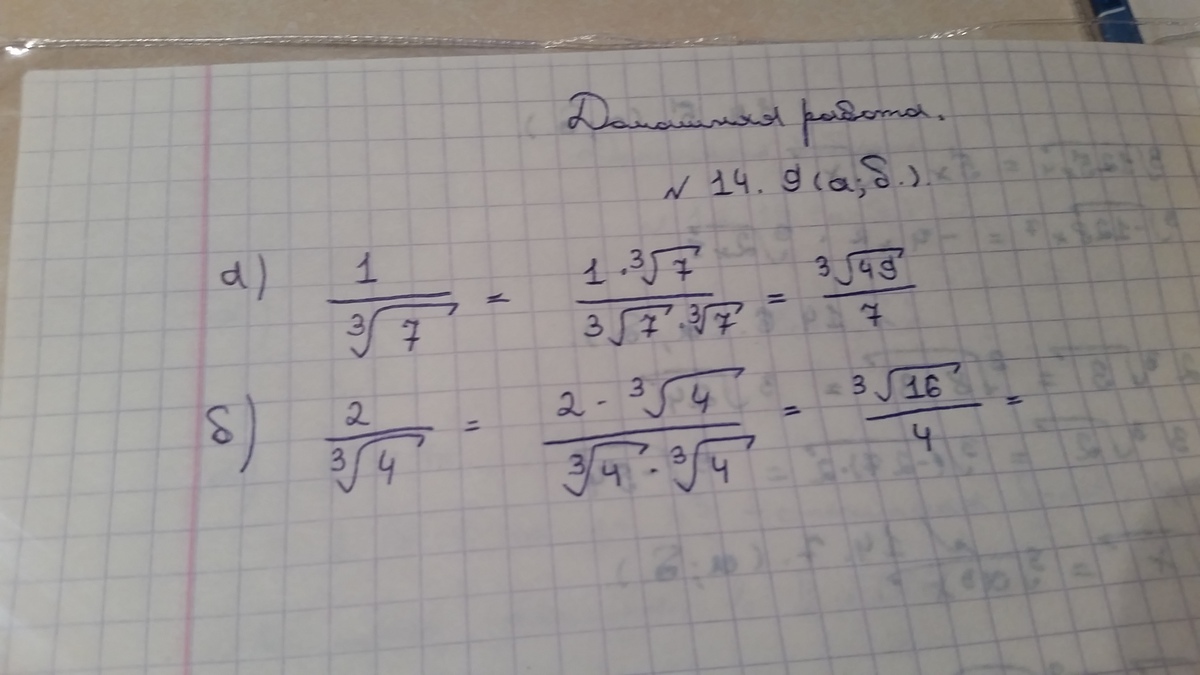 Домашняя работа.
№ 14.9(а;б.).
а) 1/∛7 = 1·∛7/∛7·∛7 = ∛49/7
б) 2/∛4 = 2·∛4/∛4·∛4 = ∛16/4 =